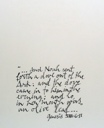 "... And Noah sent
forth a dove out of the
Ark, and the dove
came in to him in the
evening; and lo
in her mouth
an olive leaf...
Genesis